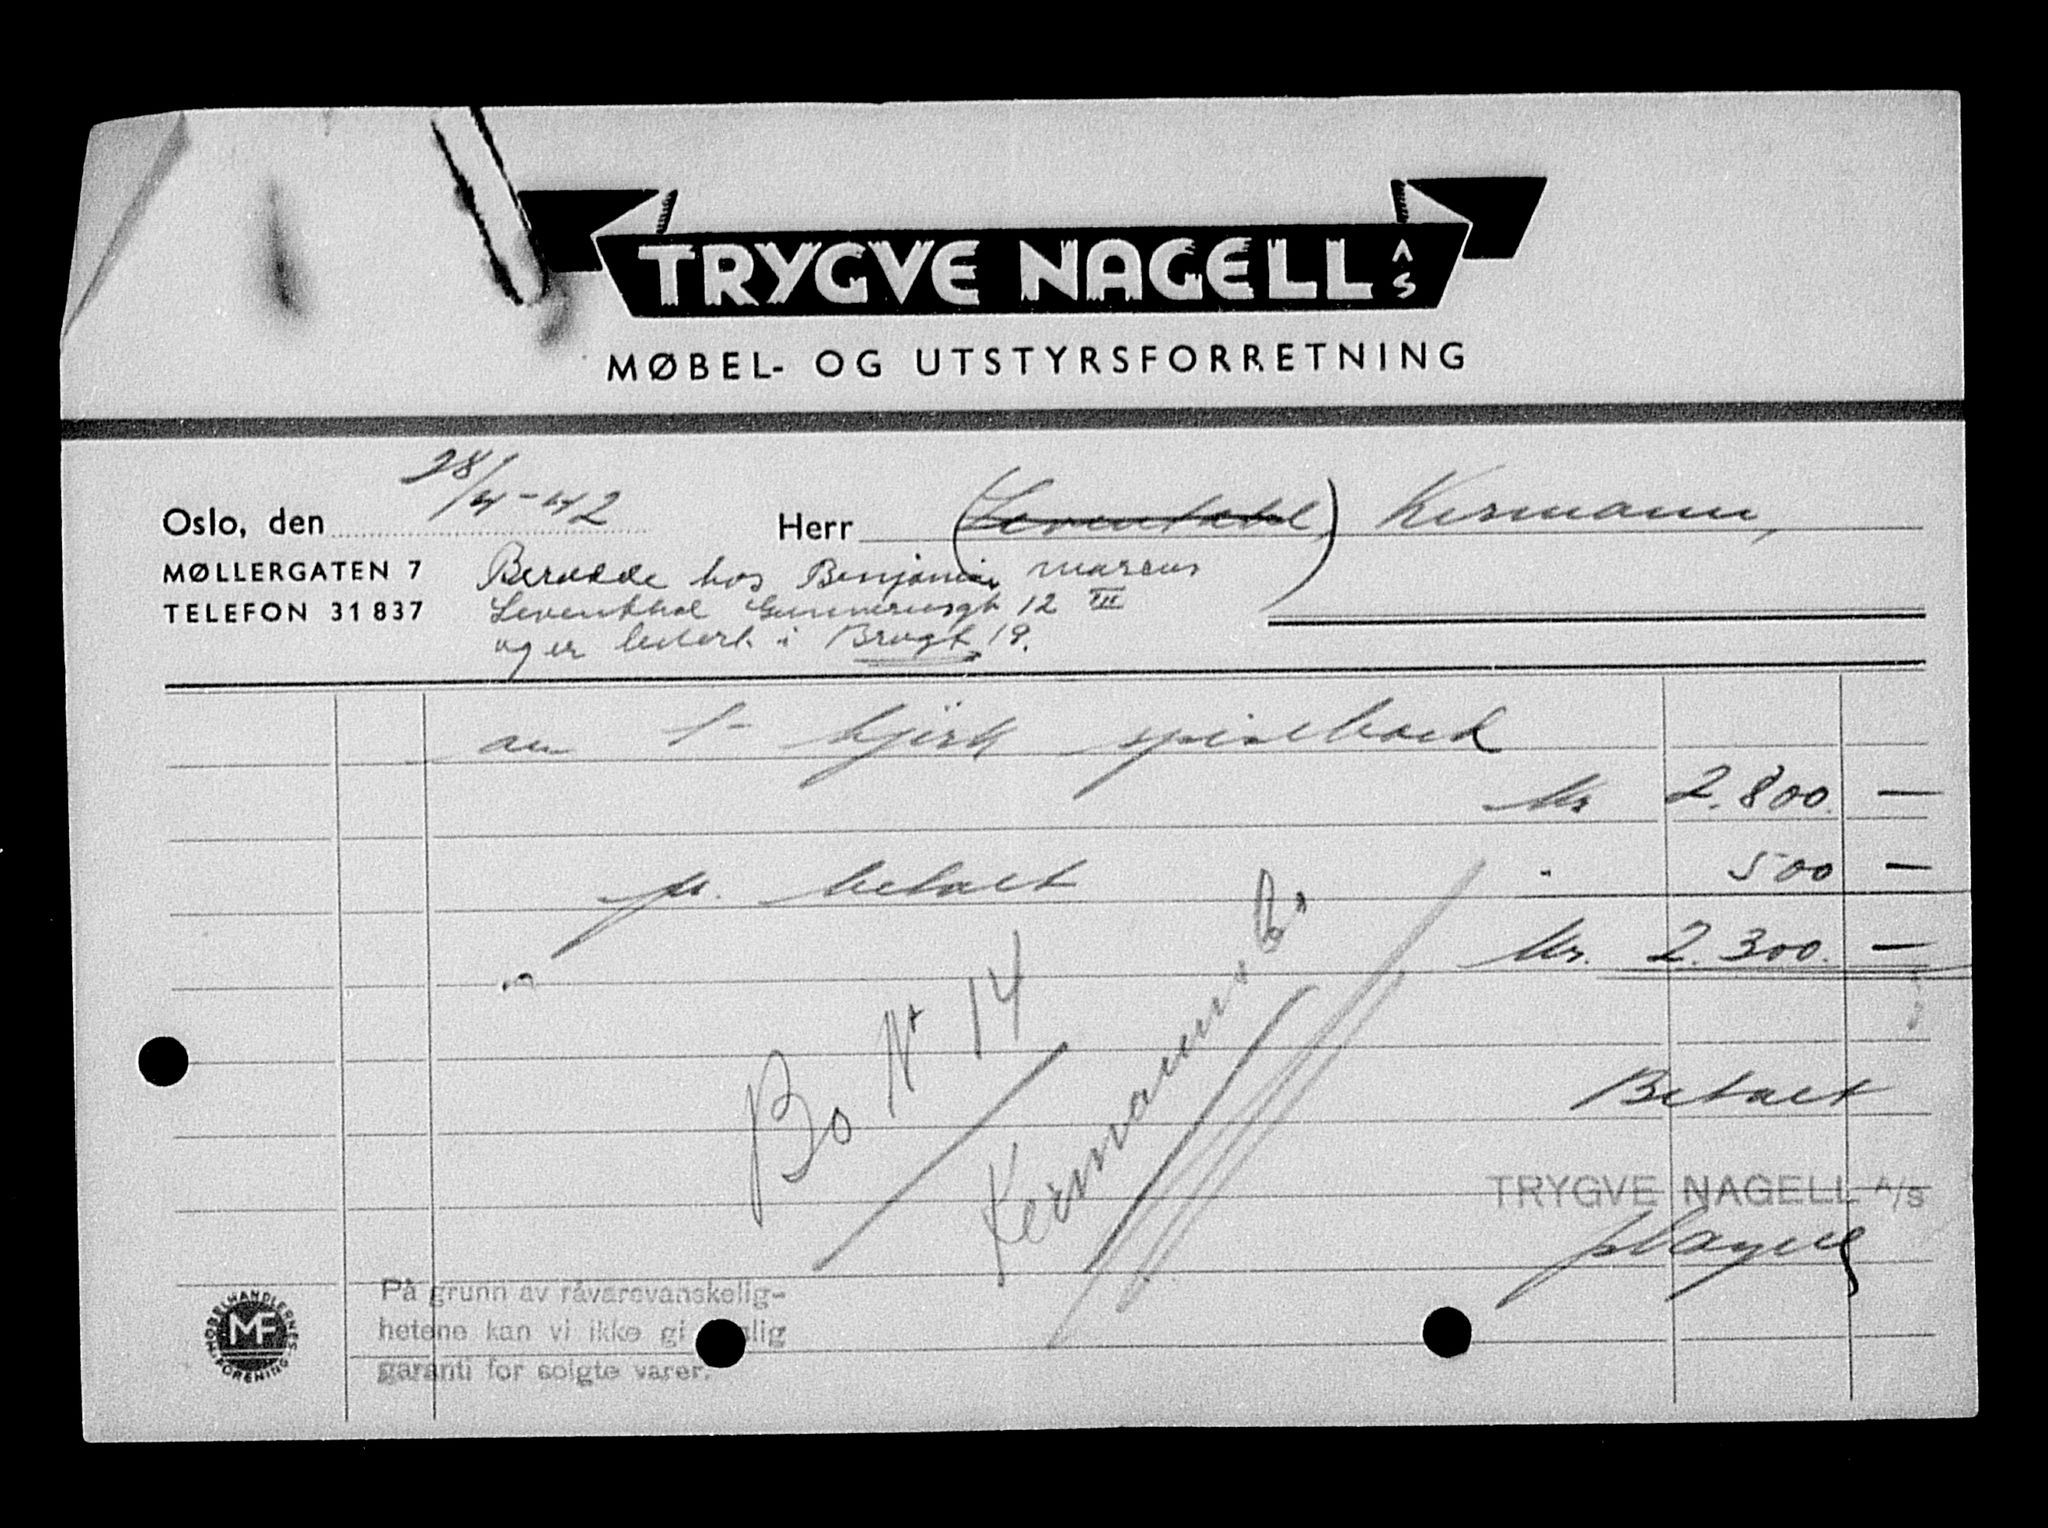 TRYGVE NAGELL A/S
MØBEL- OG UTSTYRSFORRETNING
Oslo, den 28/4-42 Herr (Leventahl) Kermann,
MØLLERGATEN 7
TELEFON 31 837
hos Benjamin Marcus
Leventhal Gunnerusgt 12 III
og er levert i Brugt 19.
1 bjørk spisebord
kr 2.800. —
pr. betalt 500 —
kr. 2.300. —
Bo Nr 14
Kermann
Betalt
TRYGVE NAGELL A/S
MØBELHANDLERNES FORENING
MF
På grunn av råvarevanskelig-
hetene kan vi ikke gi
garanti for solgte varer.